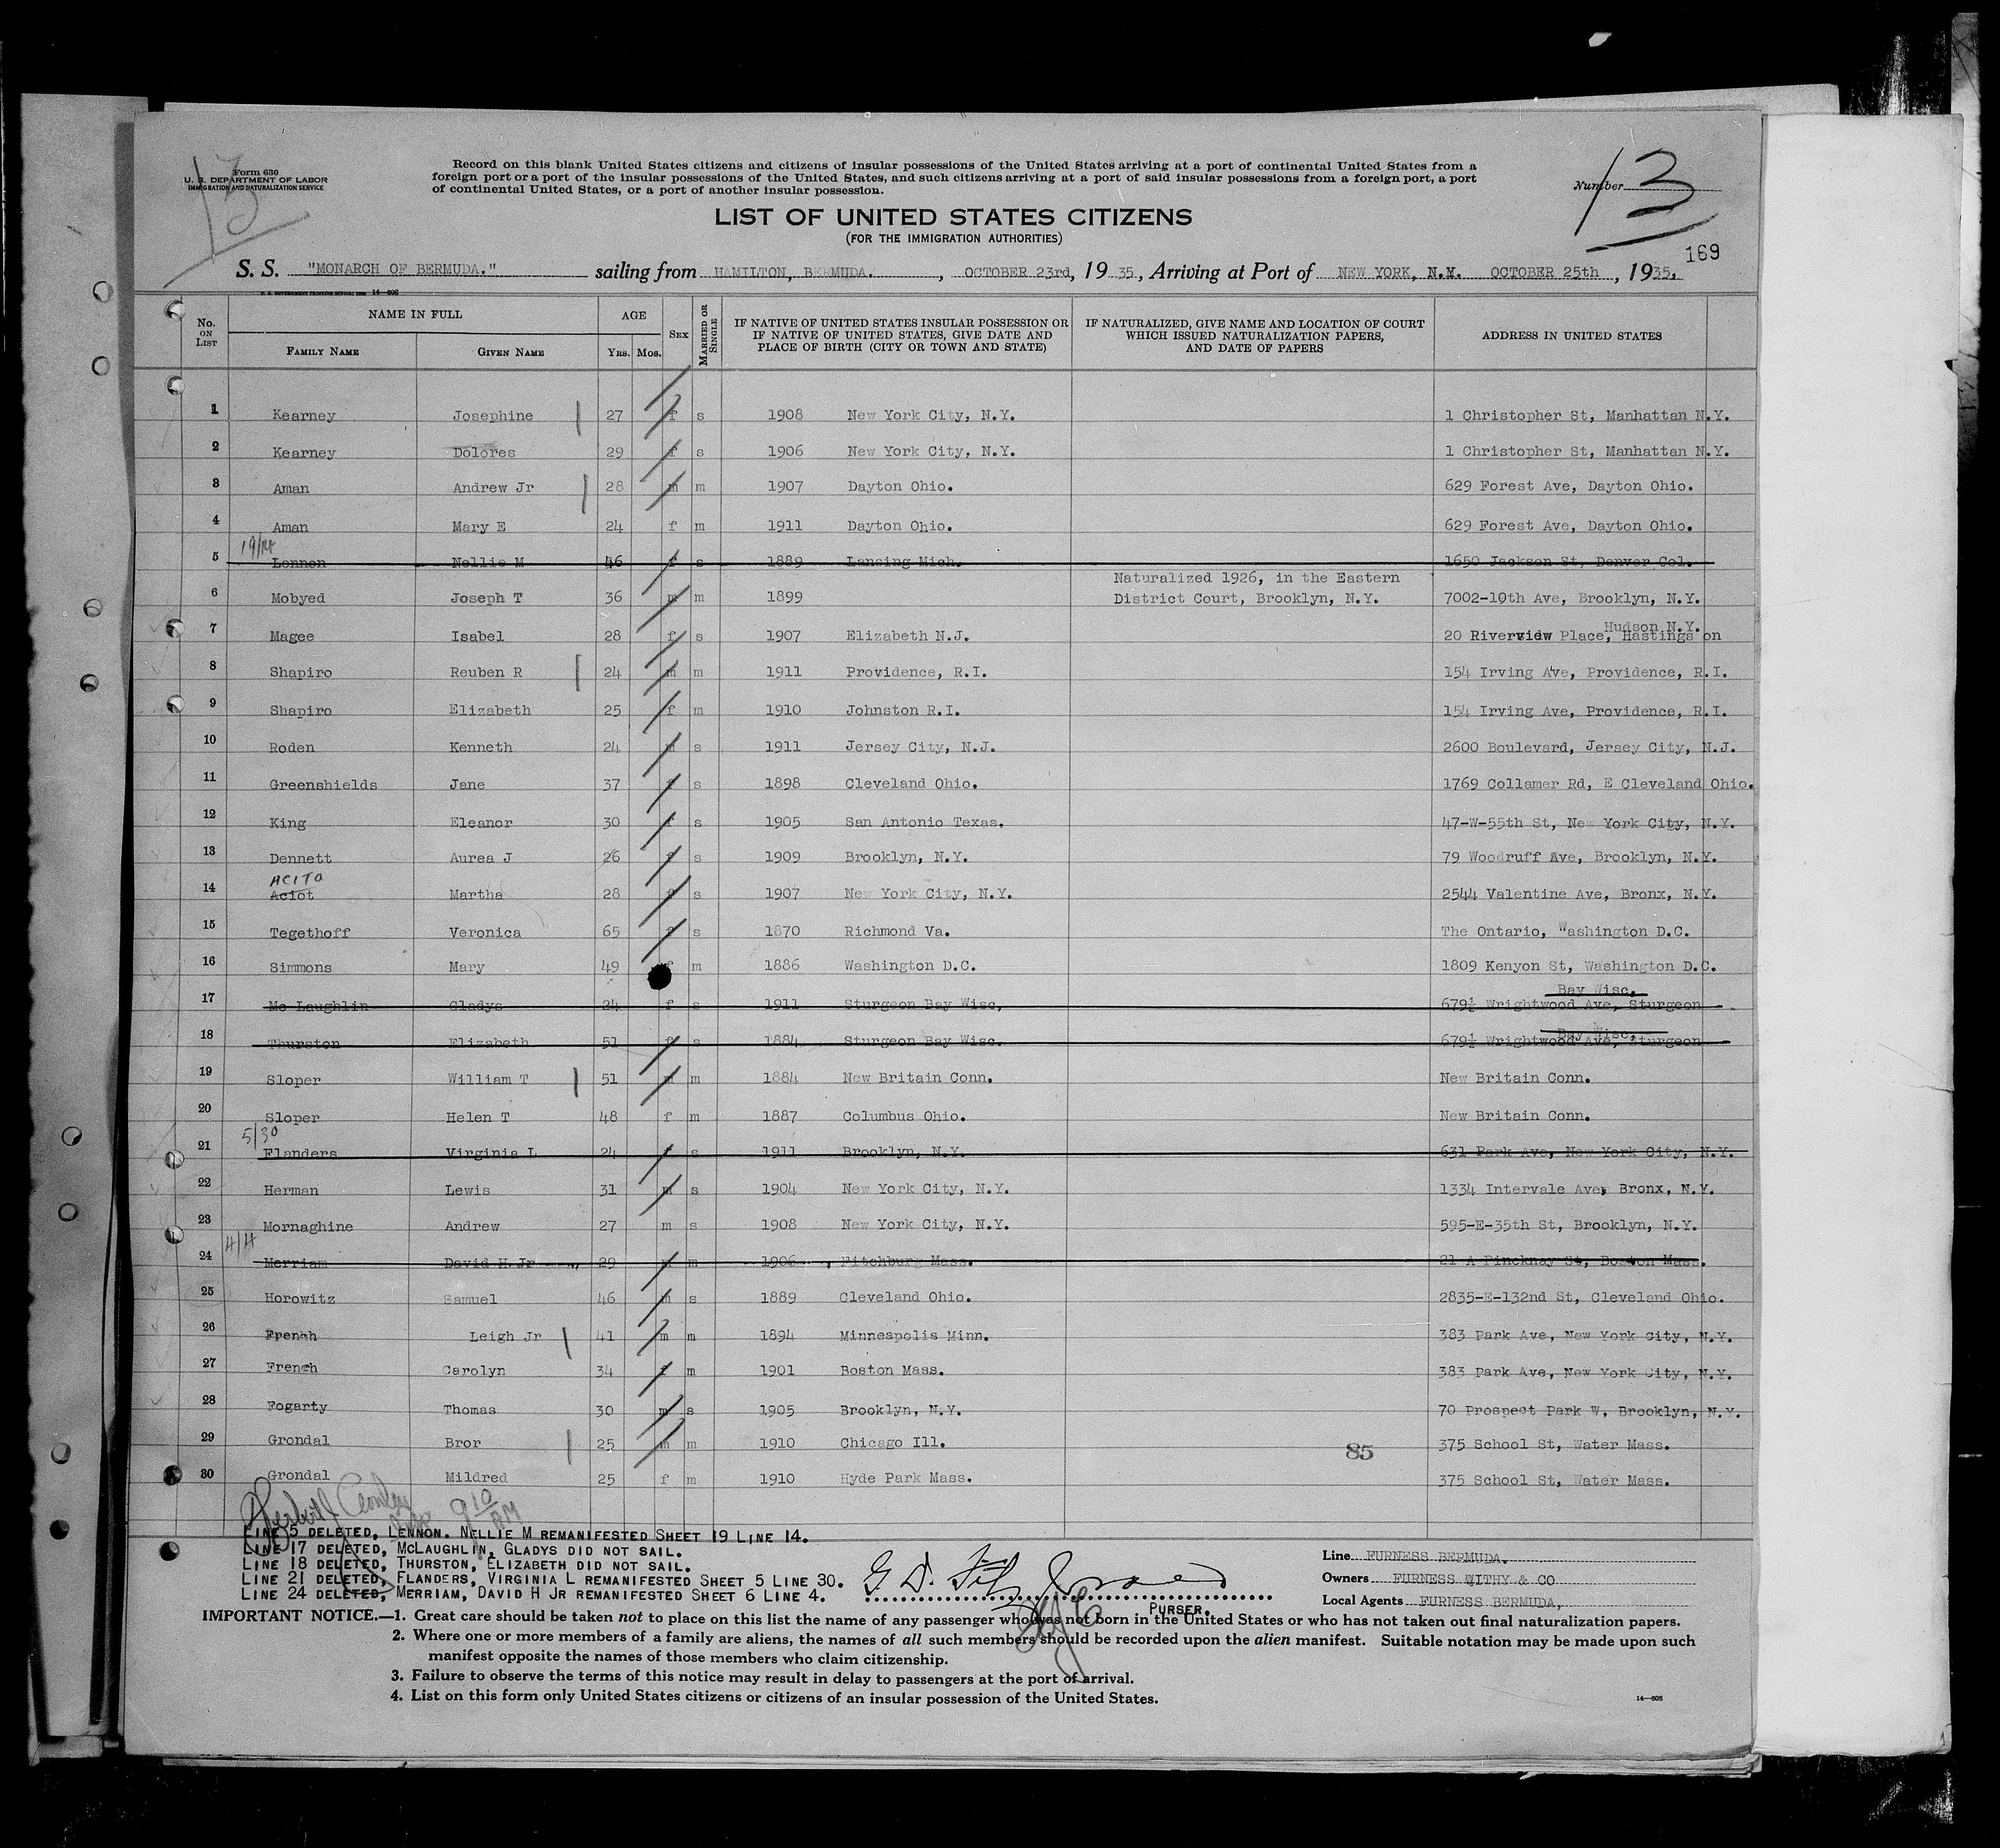 13
Form 630
U. S. DEPARTMENT OF LABOR
IMMIGRATION AND NATURALIZATION SERVICE
Record on this blank United States citizens and citizens of insular possessions of the United States arriving at a port of continental United States from a
foreign port or a port of the insular possessions of the United States, and such citizens arriving at a port of said insular possessions from a foreign port, a port
of continental United States, or a port of another insular possession.
Number 13
LIST OF UNITED STATES CITIZENS
(FOR THE IMMIGRATION AUTHORITIES)
169
S. S. "MONARCH OF BERMUDA." sailing from HAMILTON, BERMUDA. , OCTOBER 23rd, 19 35, Arriving at Port of NEW YORK, N.Y. OCTOBER 25th , 1935.
U. S. GOVERNMENT PRINTING OFFICE 14—608
No. ON LIST NAME IN FULL FAMILY NAME GIVEN NAME AGE YRS. MOS. SEX MARRIED OR SINGLE IF NATIVE OF UNITED STATES INSULAR POSSESSION OR IF NATIVE OF UNITED STATES, GIVE DATE AND PLACE OF BIRTH (CITY OR TOWN AND STATE) IF NATURALIZED, GIVE NAME AND LOCATION OF COURT WHICH ISSUED NATURALIZATION PAPERS, AND DATE OF PAPERS ADDRESS IN UNITED STATES
1 Kearney Josephine 27 f s 1908 New York City, N.Y. 1 Christopher St, Manhattan N.Y.
2 Kearney Dolores 29 f s 1906 New York City, N.Y. 1 Christopher St, Manhattan N.Y.
3 Aman Andrew Jr 28 m m 1907 Dayton Ohio. 629 Forest Ave, Dayton Ohio.
4 Aman Mary E 24 f m 1911 Dayton Ohio. 629 Forest Ave, Dayton Ohio.
19/14
5 Lennon Nellie M 46 f s 1889 Lansing Mich. 1650 Jackson St, Denver Col.
Naturalized 1926, in the Eastern
6 Mobyed Joseph T 36 m m 1899 District Court, Brooklyn, N.Y. 7002-19th Ave, Brooklyn, N.Y.
Hudson N.Y.
7 Magee Isabel 28 f s 1907 Elizabeth N.J. 20 Riverview Place, Hastings on
8 Shapiro Reuben R 24 m m 1911 Providence, R.I. 154 Irving Ave, Providence, R.I.
9 Shapiro Elizabeth 25 f m 1910 Johnston R.I. 154 Irving Ave, Providence, R.I.
10 Roden Kenneth 24 m s 1911 Jersey City, N.J. 2600 Boulevard, Jersey City, N.J.
11 Greenshields Jane 37 f s 1898 Cleveland Ohio. 1769 Collamer Rd, E Cleveland Ohio.
12 King Eleanor 30 f s 1905 San Antonio Texas. 47-W-55th St, New York City, N.Y.
13 Dennett Aurea J 26 f s 1909 Brooklyn, N.Y. 79 Woodruff Ave, Brooklyn, N.Y.
ACITO
14 Aciot Martha 28 f s 1907 New York City, N.Y. 2544 Valentine Ave, Bronx, N.Y.
15 Tegethoff Veronica 65 f s 1870 Richmond Va. The Ontario, Washington D.C.
16 Simmons Mary 49 f m 1886 Washington D.C. 1809 Kenyon St, Washington D.C.
Bay Wisc.
17 Mc Laughlin Gladys 24 f s 1911 Sturgeon Bay Wisc, 679½ Wrightwood Ave, Sturgeon
Bay Wisc.
18 Thurston Elizabeth 51 f s 1884 Sturgeon Bay Wisc. 679½ Wrightwood Ave, Sturgeon
19 Sloper William T 51 m m 1884 New Britain Conn. New Britain Conn.
20 Sloper Helen T 48 f m 1887 Columbus Ohio. New Britain Conn.
5/30
21 Flanders Virginia L 24 f s 1911 Brooklyn, N.Y. 631 Park Ave, New York City, N.Y.
22 Herman Lewis 31 m s 1904 New York City, N.Y. 1334 Intervale Ave, Bronx, N.Y.
23 Mornaghine Andrew 27 m s 1908 New York City, N.Y. 595-E-35th St, Brooklyn, N.Y.
4/4
24 Merriam David H Jr 29 m m 1906 Fitchburg Mass. 21 A Pincknay St, Boston Mass.
25 Horowitz Samuel 46 m s 1889 Cleveland Ohio. 2835-E-132nd St, Cleveland Ohio.
26 French Leigh Jr 41 m m 1894 Minneapolis Minn. 383 Park Ave, New York City, N.Y.
27 French Carolyn 34 f m 1901 Boston Mass. 383 Park Ave, New York City, N.Y.
28 Fogarty Thomas 30 m s 1905 Brooklyn, N.Y. 70 Prospect Park W, Brooklyn, N.Y.
29 Grondal Bror 25 m m 1910 Chicago Ill. 375 School St, Water Mass.
85
30 Grondal Mildred 25 f m 1910 Hyde Park Mass. 375 School St, Water Mass.
9 10 AM
LINE 5 DELETED, LENNON. NELLIE M REMANIFESTED SHEET 19 LINE 14.
LINE 17 DELETED, MCLAUGHLIN, GLADYS DID NOT SAIL.
LINE 18 DELETED, THURSTON, ELIZABETH DID NOT SAIL.
LINE 21 DELETED, FLANDERS, VIRGINIA L REMANIFESTED SHEET 5 LINE 30.
LINE 24 DELETED, MERRIAM, DAVID H JR REMANIFESTED SHEET 6 LINE 4.
PURSER.
Line FURNESS BERMUDA.
Owners FURNESS WITHY & CO
Local Agents FURNESS BERMUDA,
IMPORTANT NOTICE.—1. Great care should be taken not to place on this list the name of any passenger who was not born in the United States or who has not taken out final naturalization papers.
2. Where one or more members of a family are aliens, the names of all such members should be recorded upon the alien manifest. Suitable notation may be made upon such
manifest opposite the names of those members who claim citizenship.
3. Failure to observe the terms of this notice may result in delay to passengers at the port of arrival.
4. List on this form only United States citizens or citizens of an insular possession of the United States.
14—608